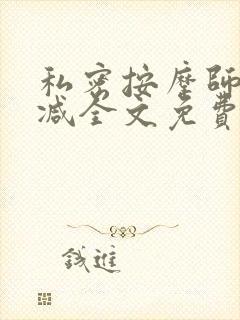 私密按摩師
減全文免費
錢進